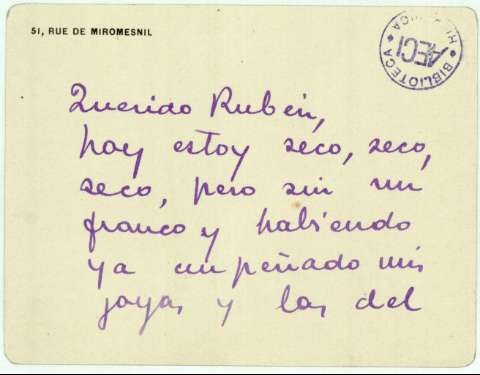 51, RUE DE MIROMESNIL
BIBLIOTECA HISPANICA
AECI
Querido Rubén,
hoy estoy seco, seco,
seco, pero sin un
franco y habiendo
ya empeñado mis
joyas y las del